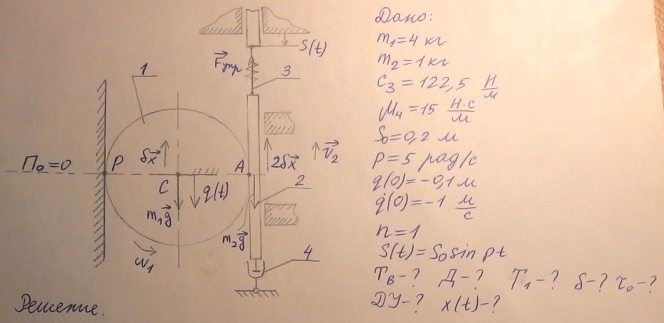 Дано:
m₁=4 кг
m₂=1 кг
c₃=122,5 Н/м
μ₄=15 Н·с/м
S₀=0,2 м
p=5 рад/с
q(0)=-0,1 м
q̇(0)=-1 м/с
n=1
S(t)=S₀sin pt
Tв-? Д-? T₁-? δ-? τ₀-?
ДУ-? x(t)-?
S(t)
F⃗упр
3
1
П₀=0
P
δx
A
2δx
V⃗₂
C
q(t)
2
m₁g⃗
m₂g⃗
ω₁
4
Решение.